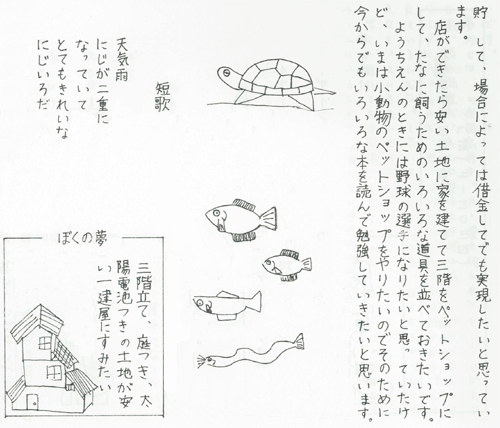 貯　して、場合によっては借金してでも実現したいと思ってい
ます。
店ができたら安い土地に家を建てて三階をペットショップに
して、たなに飼うためのいろいろな道具を並べておきたいです。
ようちえんのときには野球の選手になりたいと思っていたけ
ど、いまは小動物のペットショップをやりたいのでそのために
今からでもいろいろな本を読んで勉強していきたいと思います。
短歌
天気雨
にじが二重に
なっていて
とてもきれいな
にじいろだ
ぼくの夢
三階立て、庭つき、太
陽電池つきの土地が安
い一建屋にすみたい